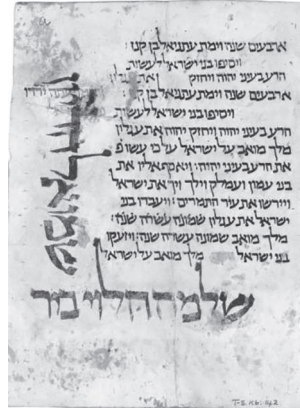 ארבעים שנה וימת עתניאל בן קנז :
ויסיפו בני ישראל לעשות
הרע בעיני יהוה ויחזק
ארבעים שנה וימת עתניאל בן קנז :
ויסיפו בני ישראל לעשות
הרע בעיני יהוה ויחזק יהוה את עגלון
מלך מואב על ישראל על כי עשו
את הרע בעיני יהוה : ויאסף אליו את
בני עמון ועמלק וילך ויך את ישראל
ויירשו את עיר התמרים : ויעבדו בני
ישראל את עגלון שמונה עשרה שנה :
מלך מואב שמונה עשרה שנה : ויזעקו
בני ישראל מלך מואב על ישראל
שלמה הלוי בר
T-S K6.142